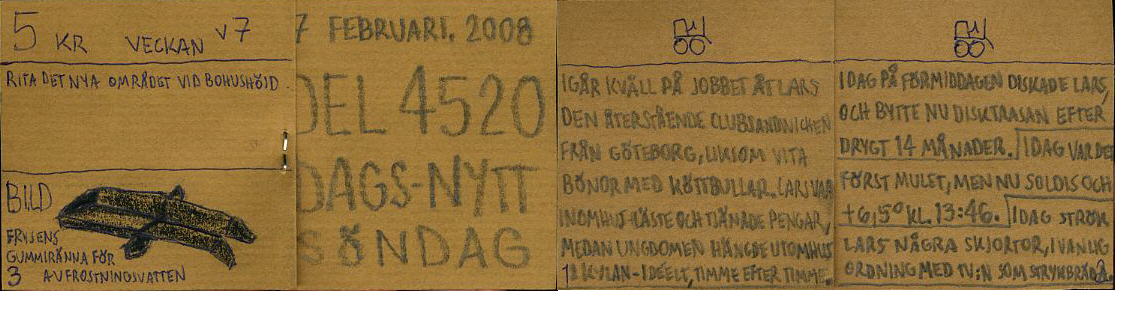 5 KR VECKAN V7
RITA DET NYA OMRÅDET VID BOHUSHÖJD.
BILD
FRYSENS
GUMMIRÄNNA FÖR
3 AVFROSTNINGSVATTEN
7 FEBRUARI. 2008
DEL 4520
DAGS-NYTT
SÖNDAG
IGÅR KVÄLL PÅ JOBBET ÅT LARS
DEN ÅTERSTÅENDE CLUBSANDWICHEN
FRÅN GÖTEBORG, LIKSOM VITA
BÖNOR MED KÖTTBULLAR. LARS VAR
INOMHUS-LÄSTE OCH TJÄNADE PENGAR,
MEDAN UNGDOMEN HÄNGDE UTOMHUS
I KYLAN-IDEELT, TIMME EFTER TIMME.
IDAG PÅ FÖRMIDDAGEN DISKADE LARS,
OCH BYTTE NU DISKTRASAN EFTER
DRYGT 14 MÅNADER. IDAG VAR DET
FÖRST MULET, MEN NU SOLDIS OCH
+6,5° KL. 13:46. IDAG STRÖK
LARS NÅGRA SKJORTOR, I VANLIG
ORDNING MED TV:N SOM STRYKBRÄDA.